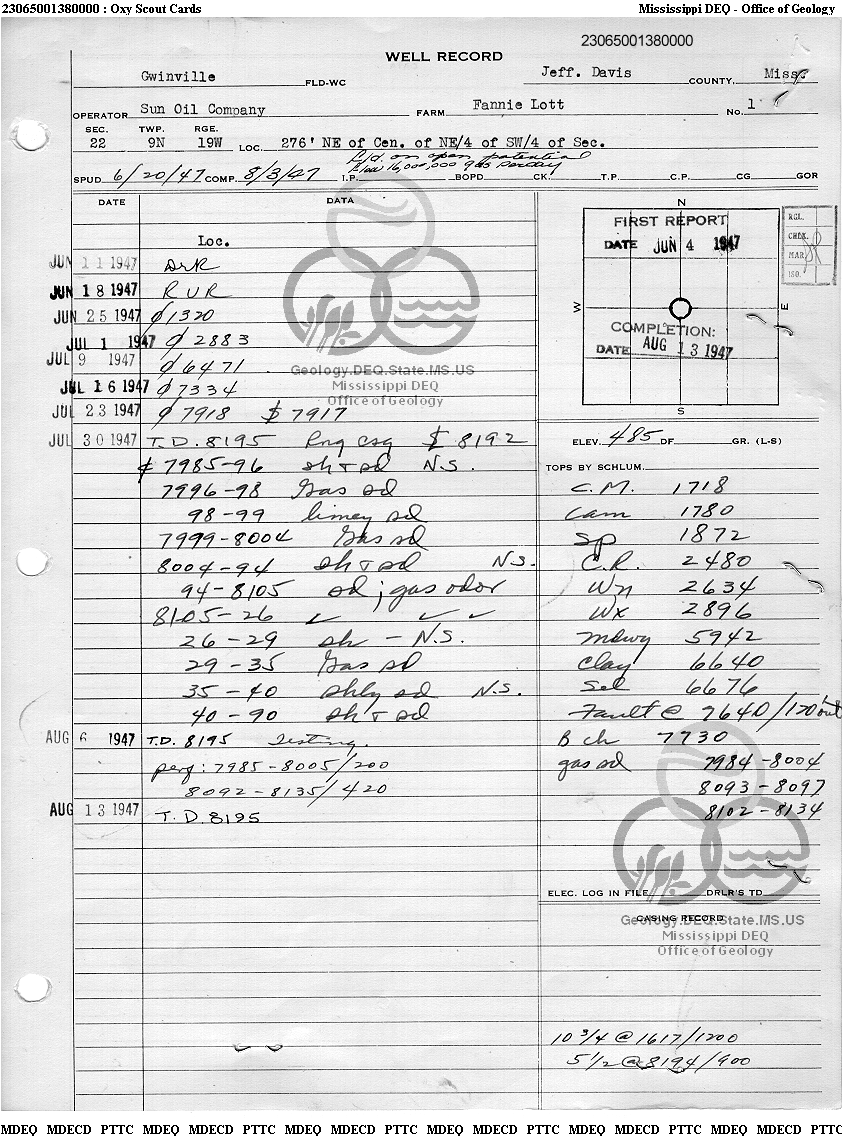 23065001380000 : Oxy Scout Cards Mississippi DEQ - Office of Geology
23065001380000
WELL RECORD
Gwinville FLD-WC Jeff. Davis COUNTY, Miss.
OPERATOR Sun Oil Company FARM Fannie Lott No. 1
SEC. TWP. RGE.
22 9N 19W LOC. 276' NE of Cen. of NE/4 of SW/4 of Sec.
on open potential
flow 16,000,000 gas
SPUD 6/20/47 COMP. 8/3/47 T.P. BOPD CK. T.P. C.P. CG GOR
DATE DATA
Loc.
JUN 11 1947 DrR
JUN 18 1947 RUR
JUN 25 1947 ȼ1320
JUL 1 1947 ȼ 2883
JUL 9 1947 ȼ6471
JUL 16 1947 ȼ7334
JUL 23 1947 ȼ 7918 $ 7917
JUL 30 1947 T.D. 8195 Rng csg $ 8192
ȼ 7985-96 sh + sd N.S.
7996-98 Gas sd
98-99 limey sd
7999-8004 Gas sd
8004-94 sh + sd N.S.
94-8105 sd; gas odor
8105-26 ✓ ✓ ✓
26-29 sh - N.S.
29-35 Gas sd
35-40 shly sd N.S.
40-90 sh + sd
AUG 6 1947 T.D. 8195 Testing.
perf: 7985-8005/200
8092-8135/420
AUG 13 1947 T.D. 8195
N
FIRST REPORT
DATE JUN 4 1947
W E
COMPLETION:
DATE AUG 13 1947
S
RGL.
CHDK.
MAR.
ISO.
ELEV. 485 DF GR. (L-S)
TOPS BY SCHLUM.
C.M. 1718
Cam 1780
Sp 1872
C.R. 2480
Wn 2634
Wx 2896
Mdwy 5942
Clay 6640
Sel 6676
Fault @ 7640/120' out
B ch 7730
gas sd 7984-8004
8093-8097
8102-8134
ELEC. LOG IN FILE DRLR'S TD
CASING RECORD
10 3/4 @ 1617/1200
5 1/2 @ 8194/900
Geology.DEQ.State.MS.US
Mississippi DEQ
Office of Geology
Geology.DEQ.State.MS.US
Mississippi DEQ
Office of Geology
MDEQ MDECD PTTC MDEQ MDECD PTTC MDEQ MDECD PTTC MDEQ MDECD PTTC MDEQ MDECD PTTC MDEQ MDECD PTTC